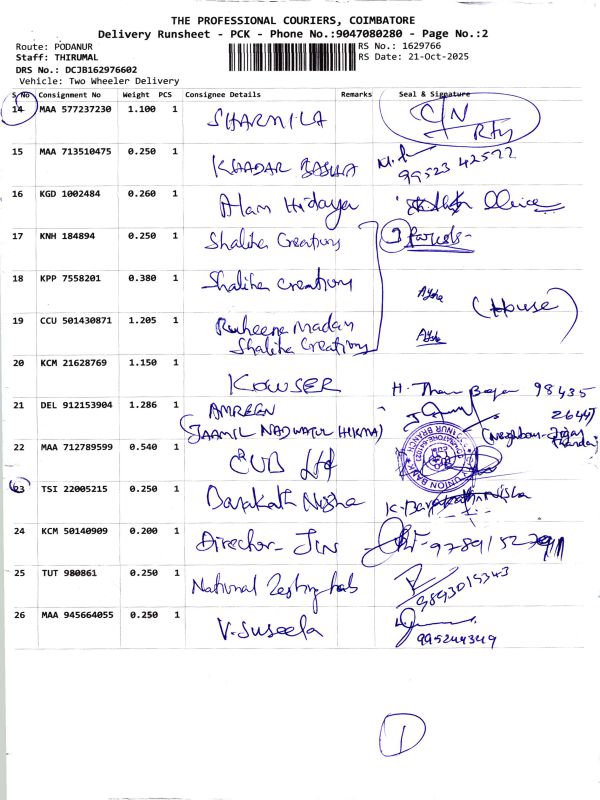 THE PROFESSIONAL COURIERS, COIMBATORE
Delivery Runsheet - PCK - Phone No.:9047080280 - Page No.:2
Route: PODANUR
RS No.: 1629766
Staff: THIRUMAL
RS Date: 21-Oct-2025
DRS No.: DCJB162976602
Vehicle: Two Wheeler Delivery
S No Consignment No Weight PCS Consignee Details Remarks Seal & Signature
14 MAA 577237230 1.100 1 SHARMILA C/N
15 MAA 713510475 0.250 1 KHAADAR BASHA 99523 42522
16 KGD 1002484 0.260 1 Alam Hidaya
17 KNH 184894 0.250 1 Shaliha Creations 3 Parcels-
18 KPP 7558201 0.380 1 Shaliha Creations Aysha (House)
19 CCU 501430871 1.205 1 Madam Aysha
Shaliha Creations
20 KCM 21628769 1.150 1 KOWSER 98435
21 DEL 912153904 1.286 1 AMREEN 26447
(JAAMIL NADWATUL HIKMA) (Neighbour-
22 MAA 712789599 0.540 1 CUB Ltd
UNION BANK
23 TSI 22005215 0.250 1 Barakath Nisha K. Barakath nisha
24 KCM 50140909 0.200 1 Director-
25 TUT 980861 0.250 1 National Testing Lab 9843015343
26 MAA 945664055 0.250 1 V. Suseela 995244349
1